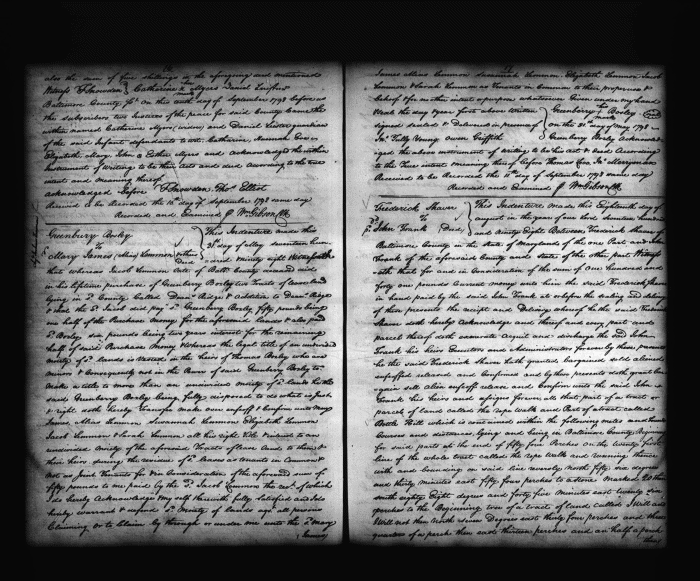 also the sum of five shillings in the aforegoing and mentioned
Witness T Snowden Catharine her mark Myers Daniel Leviston
Baltimore County Sct on this tenth day of September 1798 before us
the subscribers two Justices of the peace for said County came the
within named Catharine Myers (widow) and Daniel guardian
of the said Infant defendants to wit. Catharine, Hannah
Elizabeth Mary John & Esther Myers and acknowledged the within
Instrument of writing to be their act and deed according to the true
intent and meaning thereof
acknowledged Before T Snowden Thos Elliot
Received to be Recorded the 10th day of September 1798 same day
Recorded and Examined P Wm Gibson Clk
Greenbury Bosley
To
Mary James (Alias) Lemmon & others Deed
This Indenture made this
31st day of May seventeen hun-
dred ninety eight Witnesseth
that whereas Jacob Lemmon late of Balto County deceased did
in his lifetime purchase of Greenberry Bosley two Tracts of land
lying in sd County Called Dear Ridge & addition to Dear Ridge
& that the sd Jacob did pay sd Greenberry Bosley fifty pounds being
one half of the Purchase Money for the aforesaid lands & also paid
sd Bosley six pounds being two years interest for the remaining
half of said Purchase Money & Whereas the legal title of an undivided
moiety of sd lands is Vested in the heirs of Thomas Bosley who are
minors & Consequently not in the Power of said Greenberry Bosley to
make a title to more than an undivided moiety of sd lands
said Greenberry Bosley being fully disposed to do what is just
& right doth hereby Transfer make over enfeoff & Confirm unto Mary
James, Alias Lemmon Susannah Lemmon Elizabeth Lemmon
Jacob Lemmon & Sarah Lemmon all his right title interest to an
undivided moiety of the aforesaid Tracts of land And to them &
their heirs during the residue of sd leases as tenants in Common
not as Joint Tenants for & in Consideration of the aforesaid sum of
fifty pounds to me paid by the sd Jacob Lemmon the rect. of which
I do hereby Acknowledge my self therewith fully Satisfied and I do
hereby warrant & defend sd Moiety of lands agst all persons
Claiming or to Claim by through or under me unto the sd Mary
James
James Alias Lemmon Susannah Lemmon Elizabeth Lemmon Jacob
Lemmon & Sarah Lemmon as Tenants in Common & their proper use &
behoof & for no other intent or purpose whatsoever Given under my hand
& seal the day & year first above Written Greenberry Bosley
signed sealed & delivered in presence of on the 31st day of May 1798
Jno Tully Young Owen Griffith Greenbury Bosley acknow-
ledged the above instrument of writing to be his act & deed According
to the true intent meaning thereof before Thomas Jno Merryman
Received to be Recorded the 11th day of September 1798 same day
Recorded and Examined P Wm Gibson Clk
Frederick Shaver
To
John Frank Deed
This Indenture made this Eighteenth day of
August in the year of our Lord Seventeen hundred
and Ninety Eight Between Frederick Shaver of
Baltimore County in the State of Maryland of the one Part and John
Frank of the aforesaid County and State of the other part Witness-
eth that for and in Consideration of the sum of One hundred and
forty one pounds Current money unto him the said Frederick Shaver
in hand paid by the said John Frank at or before the sealing and delivery
of these presents the receipt and Delivery whereof he the said Frederick
Shaver doth hereby acknowledge and thereof and every part and
parcel thereof doth exonerate acquit and discharge the said John
Frank his heirs Executors and Administrators forever by these presents
he the said Frederick Shaver hath granted bargained sold aliened
enfeoffed released and Confirmed and by these presents doth grant bar-
gain sell alien enfeoff release and Confirm unto the said John
Frank his heirs and assigns forever all that part of a tract or
parcel of land called the rope walk and Part of a tract called
Bottle Hill which is contained within the following metes and bounds
Courses and distances lying and being in Baltimore County Beginning
for said parts at the end of fifty four Perches on the twenty first
line of the whole tract called the rope walk and running thence
with and bounding on said line seventy North fifty six degrees
and thirty minutes east fifty four perches to a stone Marked No then
north eighty eight degrees and forty five minutes east twenty six
perches to the Beginning tree of a tract of land called I Will and
Will not then North Seven Degrees east thirty four perches and three
quarters of a perch then said thirteen perches and an half a perch
then